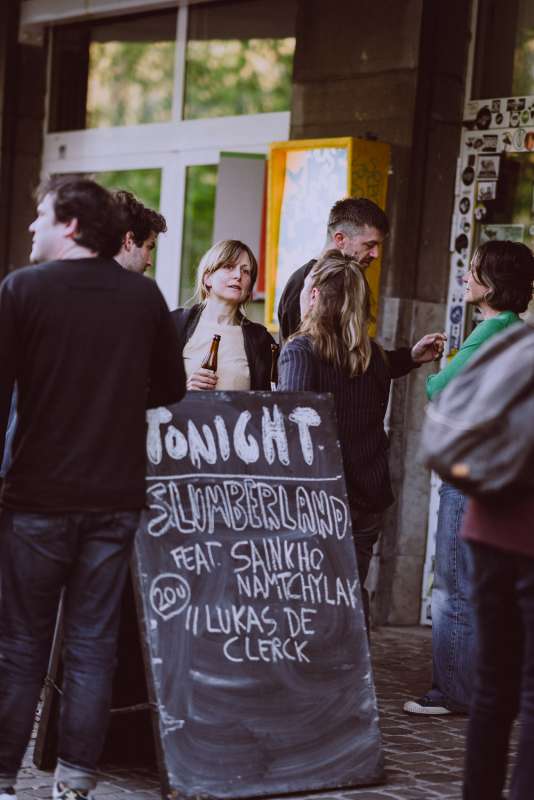 TONIGHT
SLUMBERLAND
FEAT. SAINKHO
NAMTCHYLAK
20U
// LUKAS DE
CLERCK